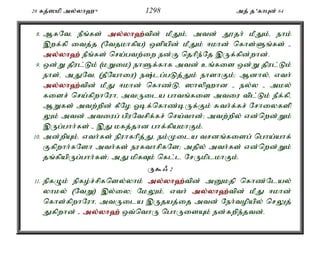 28 கத்ஸமி அல்லாஹு 1298 அத் தஃகாபுன் 64
8. ஆகவே, நீங்கள் அல்லாஹ்வின் மீதும், அவன் தூதர் மீதும், நாம்
இறக்கி வைத்த (வேதமாகிய) ஒளியின் மீதும் ஈமான் கொள்ளுங்கள் -
அல்லாஹ் நீங்கள் செய்பவற்றை நன்கு தெரிந்தே இருக்கின்றான்.
9. ஒன்று திரட்டும் (மறுமை) நாளுக்காக அவன் உங்களை ஒன்று திரட்டும்
நாள், அதுவே, (தீயோரை) நஷ்டப்படுத்தும் நாளாகும்; ஆனால், எவர்
அல்லாஹ்வின் மீது ஈமான் கொண்டு, ஸாலிஹான - நல்ல - அமல்
களைச் செய்கிறாரோ, அவருடைய பாவங்களை அவரை விட்டும் நீக்கி,
ஆறுகள் அவற்றின் கீழே ஓடிக்கொண்டிருக்கும் சுவர்க்கச் சோலைகளி
லும் அவன் அவரைப் பிரவேசிக்கச் செய்வான்; அவற்றில் என்றென்றும்
இருப்பார்கள் - இது மகத்தான பாக்கியமாகும்.
10. அன்றியும், எவர்கள் நிராகரித்து, நம்முடைய வசனங்களைப் பொய்யாக்
குகிறார்களோ அவர்கள் நரகவாசிகளே; அதில் அவர்கள் என்றென்றும்
தங்கியிருப்பார்கள்; அது மிகவும் கெட்ட சேருமிடமாகும்.
ருகூஃ 2
11. நிகழும் நிகழ்ச்சிகளெல்லாம் அல்லாஹ்வின் அனுமதி கொண்டேயல்
லாமல் (வேறு) இல்லை; மேலும், எவர் அல்லாஹ்வின் மீது ஈமான்
கொள்கிறாரோ, அவருடைய இருதயத்தை அவன் நேர்வழியில் செலுத்
துகிறான் - அல்லாஹ் ஒவ்வொரு பொருளையும் நன்கறிந்தவன்.